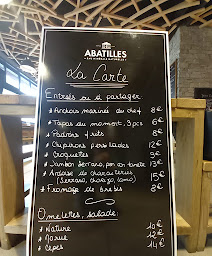 ABATILLES
EAU MINÉRALE NATURELLE
La Carte
Entrées ou à partager:
* Anchois marinés du chef 8€
* Tapas du moment, 3 pcs 6€
* Padrons frits 8€
* Chipirons persillades 12€
* Croquettes 9€
* Jambon Serrano, pan con tomate 13€
* Ardoise de charcuteries 15€
(Serrano, chorizo, lomo)
* Fromage de brebis 8€
Omelettes, salade:
* Nature 10€
* Morue 12€
* Cèpes 14€